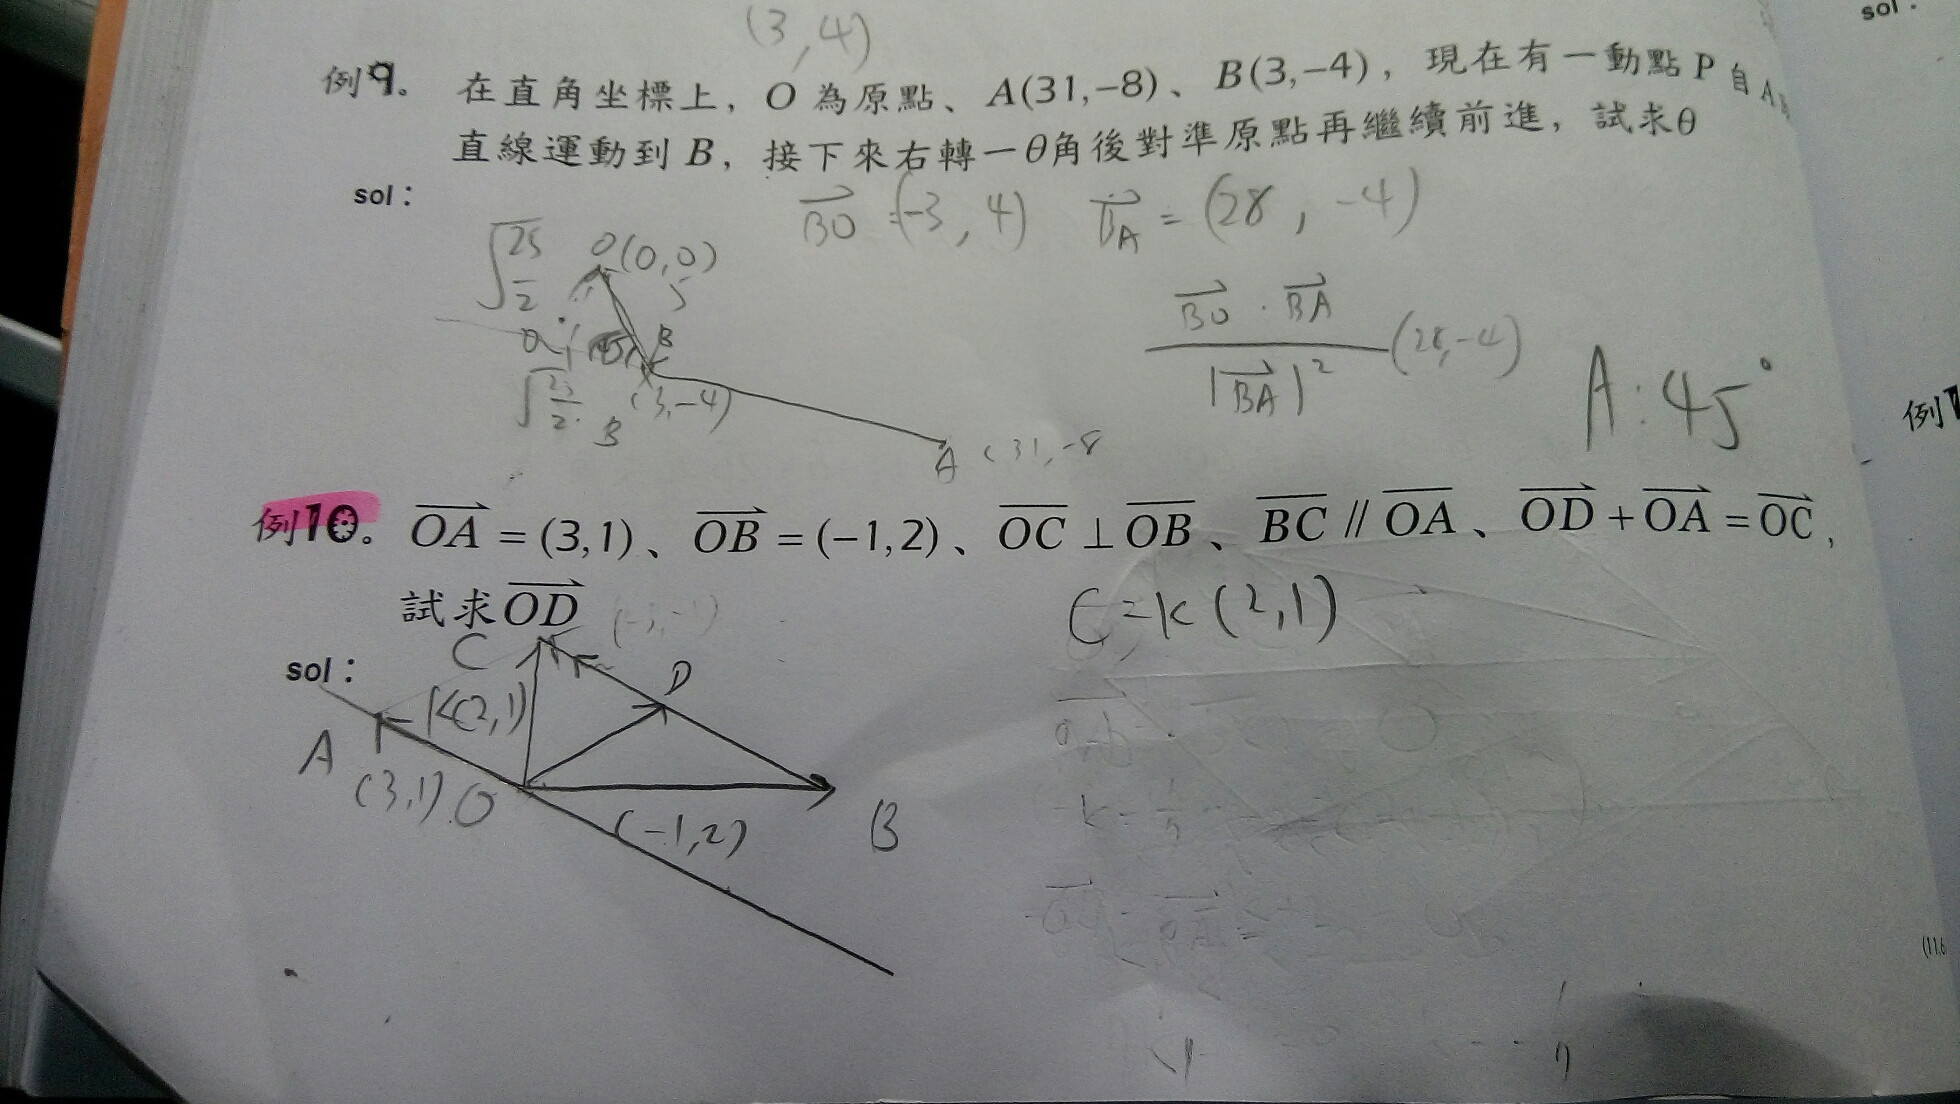 sol:
(3,4)
例9。 在直角坐標上，O 為原點、A(31,−8)、B(3,−4)，現在有一動點 P 自 A
直線運動到 B，接下來右轉一θ角後對準原點再繼續前進，試求θ
sol：
BO = (-3, 4) BA = (28, -4)
√25/2 O(0,0)
5
B
(3,-4)
√25/2
B
A (31,-8
BO · BA / |BA|² (28,-4)
A: 45°
例1
例10。 OA = (3,1)、OB = (−1,2)、OC ⊥ OB、BC // OA、OD + OA = OC，
試求OD (-3,-1)
C = k(2,1)
sol：
C
D
k(2,1)
A
(3,1) O
(-1,2)
B
k =
(11.6